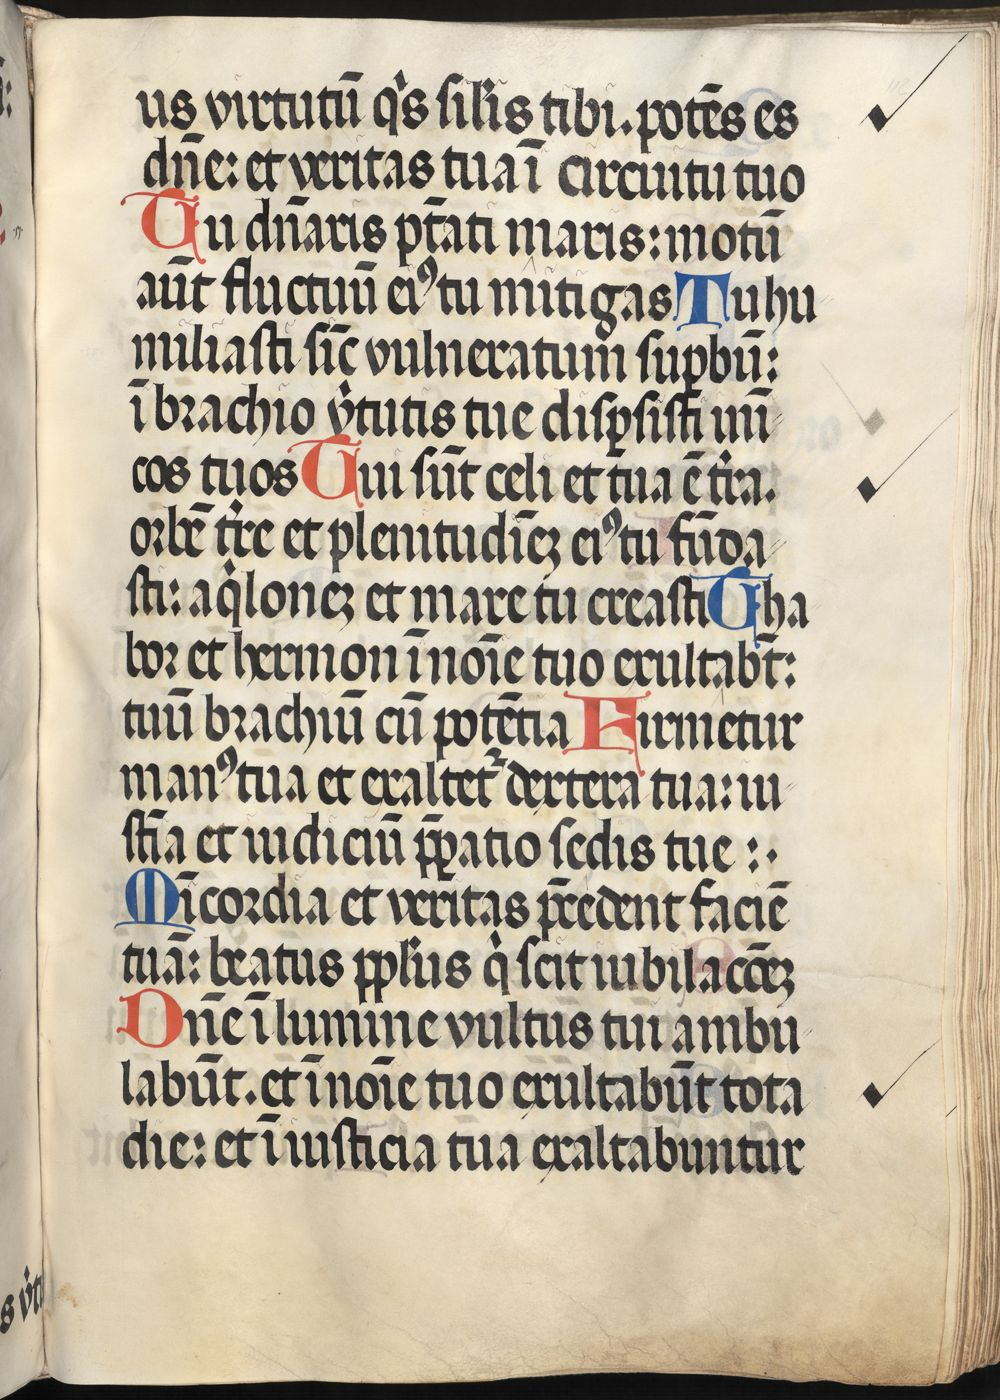 us virtutū qͥs silĩs tibi. potēs es
dñe: et veritas tua ĩ circuitu tuo
Tu dñaris ptãti maris: motū
aūt fluctuū ei⁹ tu mitigas Tu hu
miliasti sic̄ vulneratum supbū:
ĩ brachio vͥtutis tue dispsisti ini
cos tuos Tui sūt celi et tua ē tr̃a.
orbē tr̃e et plenitudiēꝫ ei⁹ tu fūda
sti: aqͥloneꝫ et mare tu creasti Tha
bor et hermon ĩ noīe tuo exultabt̄:
tuū brachiū cū potētia Firmetur
man⁹ tua et exaltet᷑ dextera tua: iu
stĩa et iudiciū p̄patio sedis tue :.
Mĩcordia et veritas p̄cedent faciē
tuā: beatus pplũs qͥ scit iubilacōeꝫ
Dñe ĩ lumine vultus tui ambu
labūt. et ĩ noīe tuo exultabūt tota
die: et ĩ iusticia tua exaltabuntur